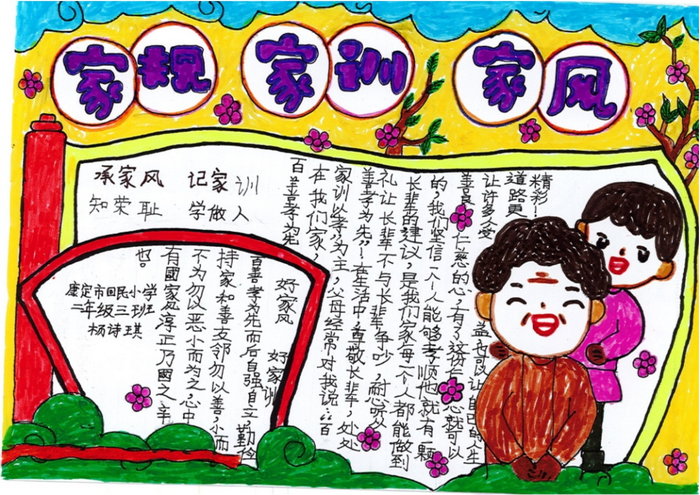 家规 家训 家风
承家风 记家训
知荣耻 学做人
百善孝为先
在我们家,
家训以孝为主,父母经常对我说:“百
善孝为先”.在生活中尊敬长辈,处处
礼让长辈不与长辈争吵,耐心听
长辈的建议,是我们家每一个人都能做到
的,我们坚信一个人能够孝顺他就有一颗
善良仁慈的心,有了这份仁心就可以
让许多人受益可以让自己的人生
道路更
精彩!
好家风
好家训
百善孝为先而后自强自立勤俭
持家和善友邻勿以善小而
不为勿以恶小而为之心中
有國家淳正乃國之幸
也。
康定市回民小学
二年级三班
杨诗琪